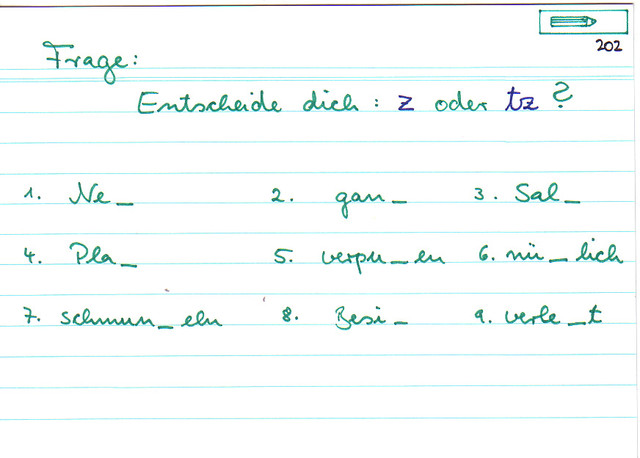 202
Frage:
Entscheide dich: z oder tz?
1. Ne_ 2. gan_ 3. Sal_
4. Pla_ 5. verpu_en 6. nü_lich
7. schmun_eln 8. Besi_ 9. verle_t